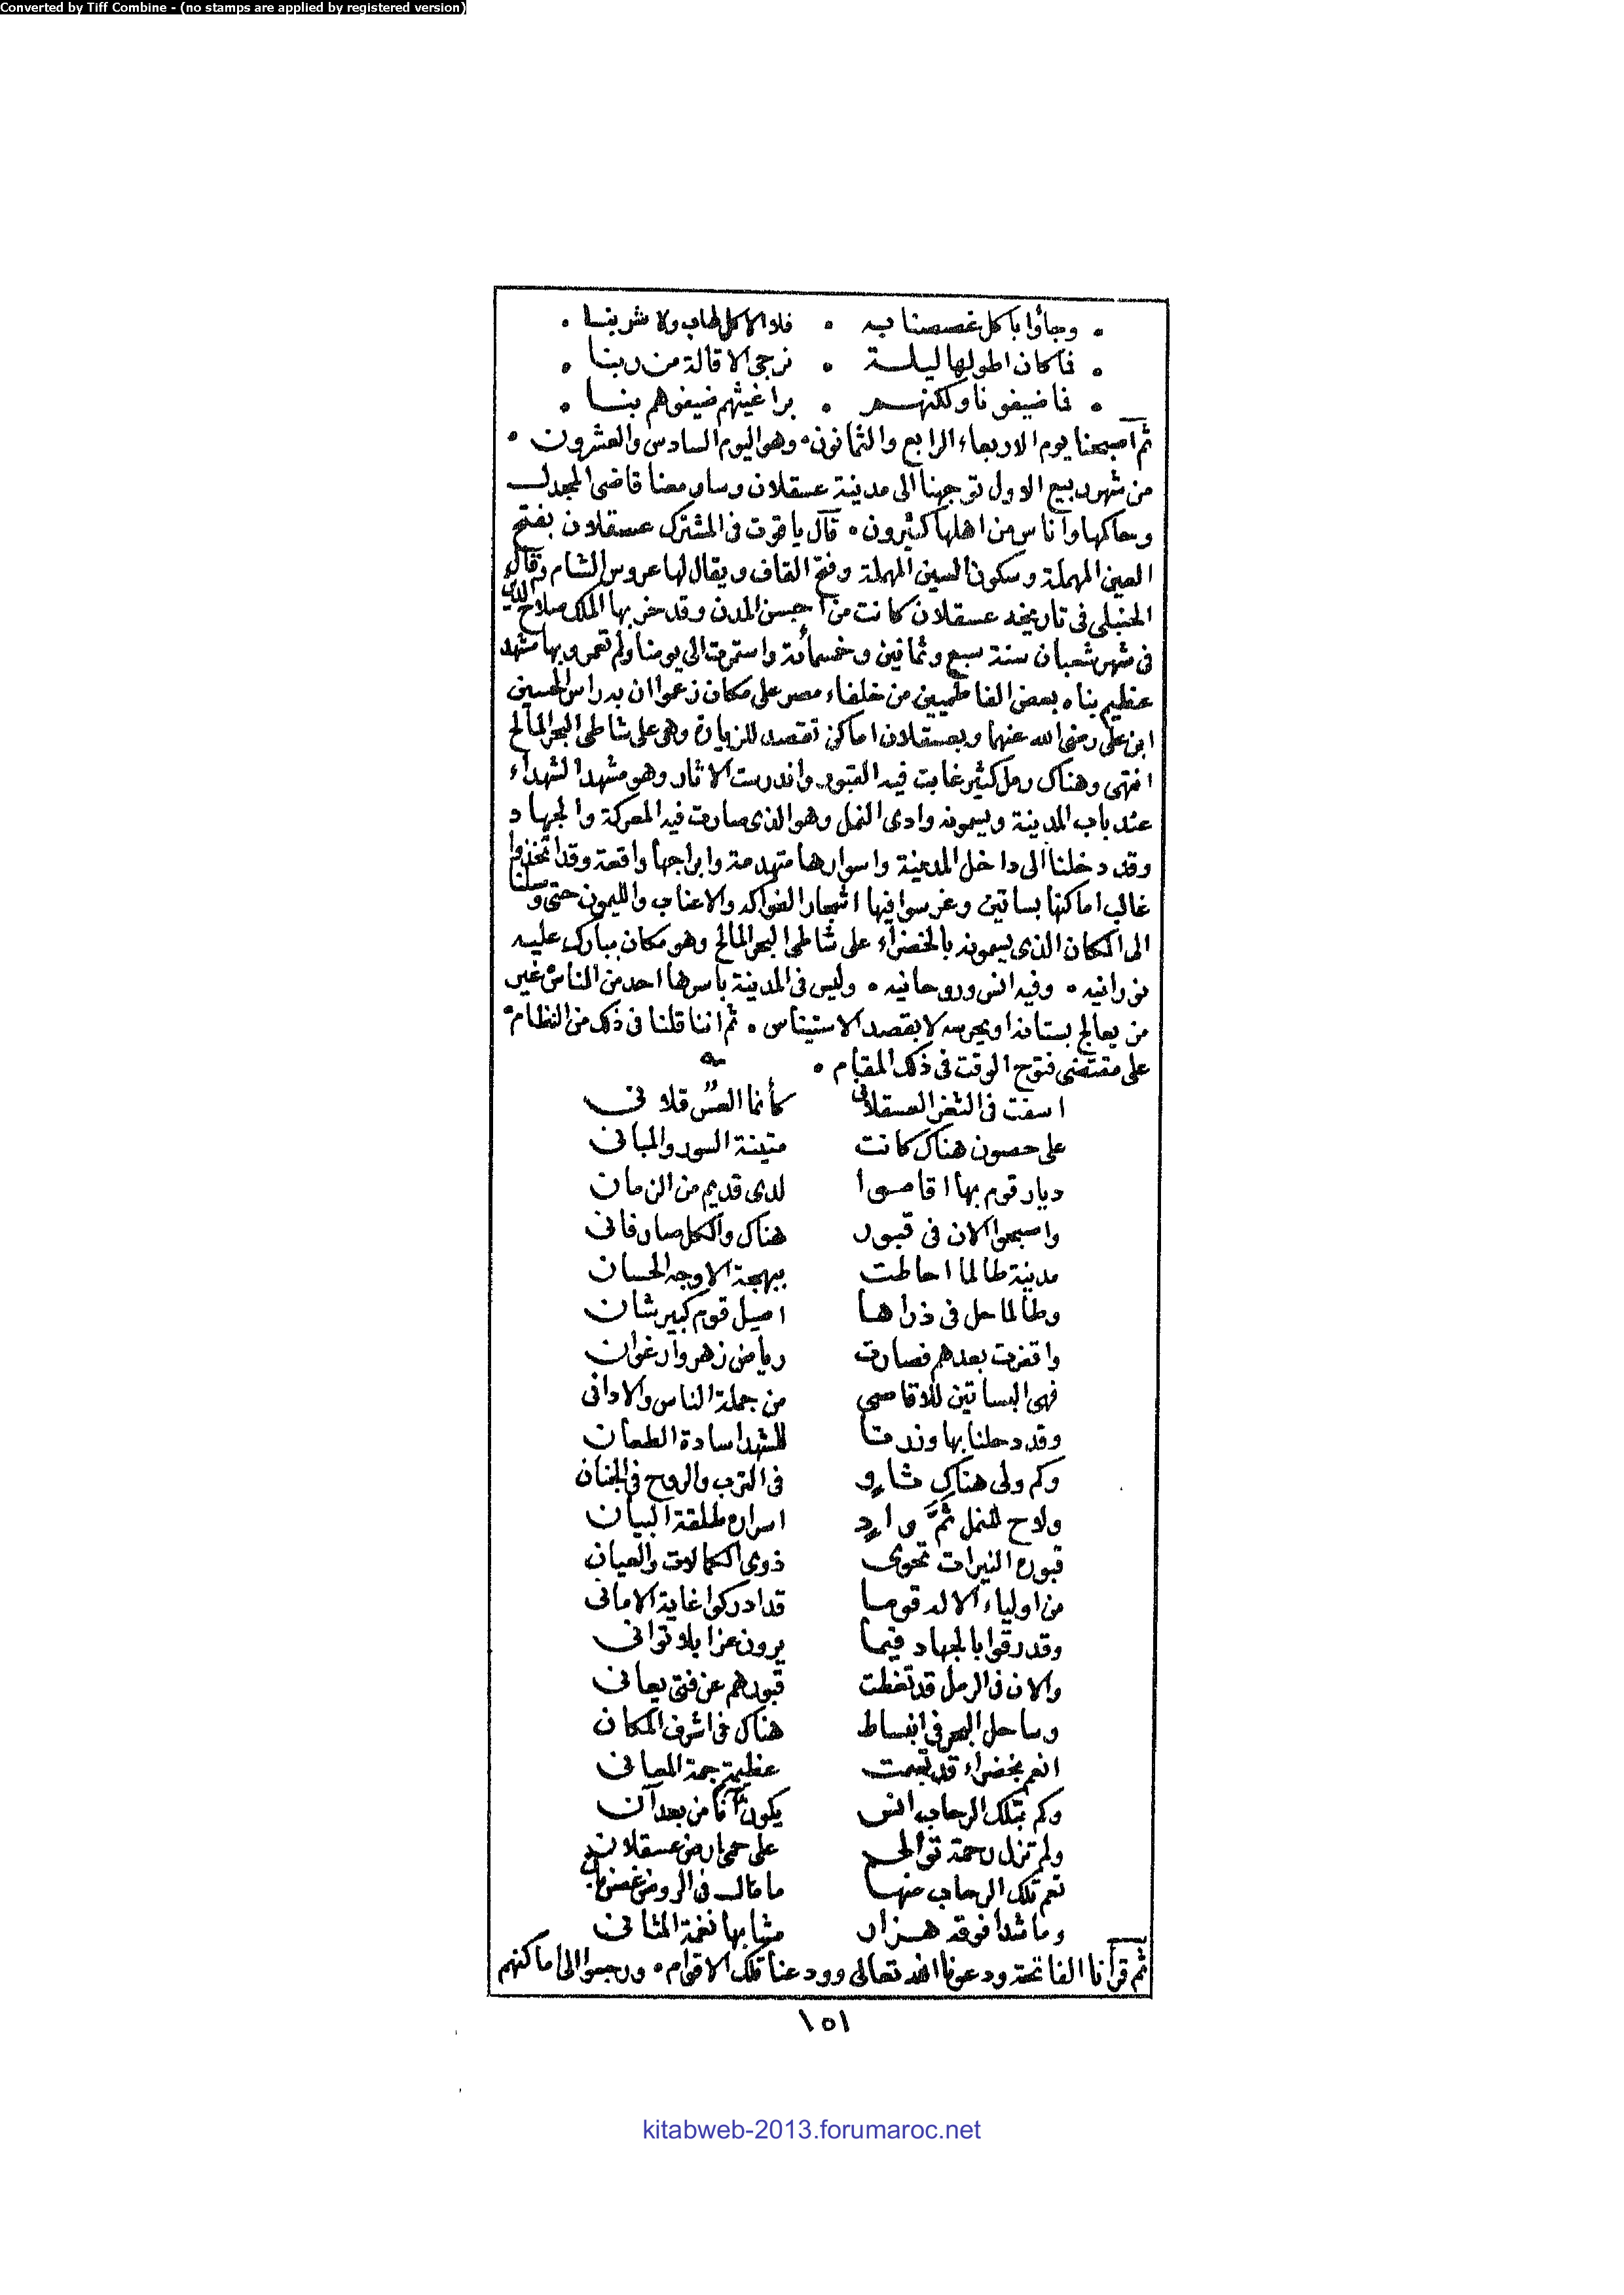 Converted by Tiff Combine - (no stamps are applied by registered version)
• وجاؤا باكل غصصنا به • فلا الاكل طاب ولا شربنا •
• فما كان اطولها ليلة • نرجى الاقالة من ربنا •
• فما ضيفونا ولكنهم • براغيثهم ضيفوهم بنا •
ثم اصبحنا يوم الاربعاء الرابع والثمانون • وهو اليوم السادس والعشرون •
من شهر ربيع الاول توجهنا الى مدينة عسقلان وسار معنا قاضى المجدل
وحاكمها واناس من اهلها كثيرون • قال ياقوت فى المشترك عسقلان بفتح
العين المهملة وسكون السين المهملة وفتح القاف ويقال لها عروس الشام وقال
الحنبلى فى تاريخه عسقلان كانت من احسن المدن وقد خربها الملك صلاح الدين
فى شهر شعبان سنة سبع وثمانين وخمسمائة واستمرت الى يومنا ولم تعمر وبها مشهد
عظيم بناه بعض الفاطميين من خلفاء مصر على مكان زعموا ان به راس الحسين
ابن على رضى الله عنهما وبعسقلان اماكن تقصد للزيارة وهى على شاطى البحر المالح
انتهى وهناك رمل كثير غابت فيه القبور واندرست الاثار وهو مشهد الشهداء
عند باب المدينة ويسمونه وادى النمل وهو الذى صارت فيه المعركة والجهاد
وقد دخلنا الى داخل المدينة واسوارها متهدمة وابراجها واقعة وقد اتخذوا
غالب اماكنها بساتين وغرسوا فيها اشجار الفواكه والاعناب والليمون حتى وصلنا
الى المكان الذى يسمونه بالخضراء على شاطى البحر المالح وهو مكان مبارك عليه
نورانيه • وفيه انس وروحانيه • وليس فى المدينة باسرها احد من الناس غير
من يعالج بستانه او يحرسه لا بقصد الاستيناس • ثم اننا قلنا فى ذلك من النظام •
على مقتضى فتوح الوقت فى ذلك المقام •
اسفت فى الثغر العسقلانى كأنما العسّ قلانى
على حصون هناك كانت متينة السور والمبانى
ديار قوم بها اقاموا لدى قديم من الزمان
واصبحوا الان فى قبور هناك والكل صار فانى
مدينة طالما احاطت ببهجة الاوجه الحسان
وطالما حل فى ذراها اصيل قوم كبير شان
واقفرت بعدهم فصارت رياض زهر وارغوان
فهى البساتين للاقاصى من جملة الناس والادانى
وقد دخلنا بها وزرنا للشهدا سادة الطعان
وكم ولى هناك ثاو فى الترب والروح فى الجنان
ولاح للنمل ثمّ واد اسراره طلقة البيان
قبوره النيرات تحوى ذوى الكمالات والعيان
من اولياء الاله قوما قد ادركوا غاية الامانى
وقد رقوا بالجهاد فيما يرون عزا بلا توانى
والان فى الرمل قد تغطت قبورهم عن فتى يعانى
وساحل البحر فى انبساط هناك فى اشرف المكان
انعم بخضراء قد تسمت عظيمة جمة المعانى
وكم بتلك الرحاب انس يكون آنا من بعد آن
ولم تزل رحمة توالى على حمى ارض عسقلان
تعم تلك الرحاب منها ما مال فى الروض غصن بان
وما شدا فوقه هزار مشابها نغمة المثانى
ثم قرأنا الفاتحة ودعونا الله تعالى وودعنا تلك الاقوام • ورجعوا الى اماكنهم
١٥١
kitabweb-2013.forumaroc.net